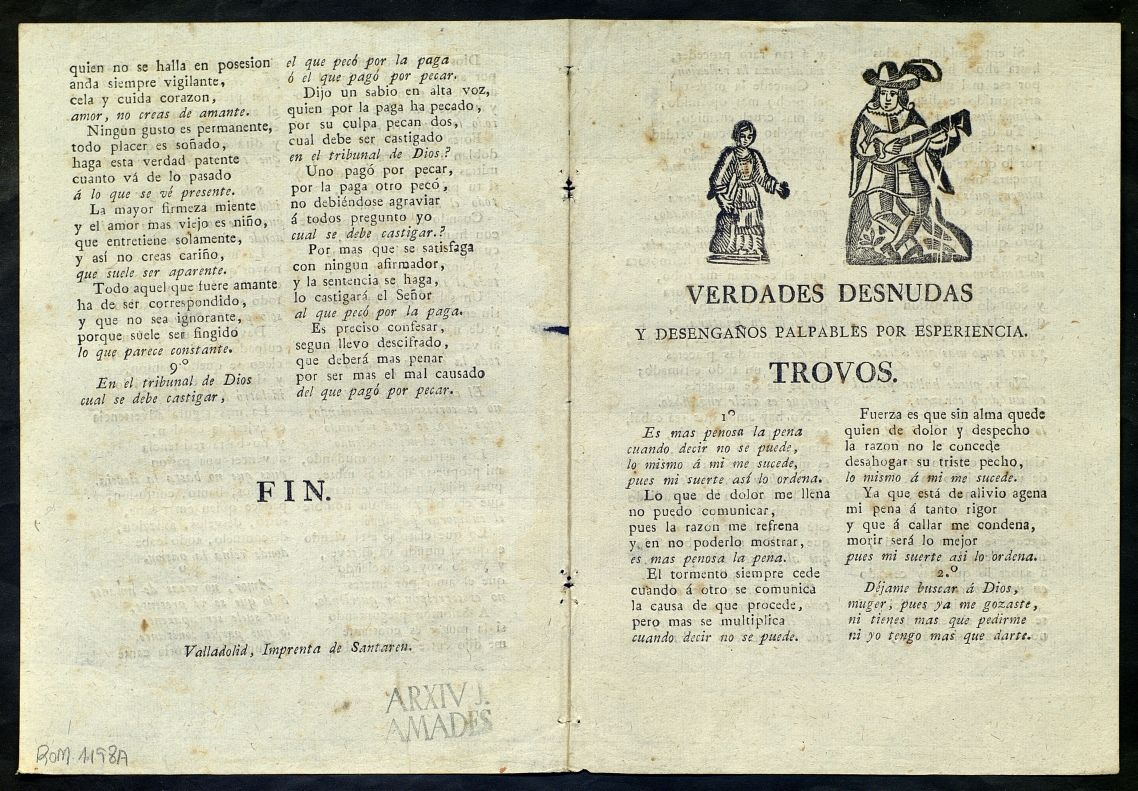 quien no se halla en posesion
anda siempre vigilante,
cela y cuida corazon,
amor, no creas de amante.
Ningun gusto es permanente,
todo placer es soñado,
haga esta verdad patente
cuanto vá de lo pasado
á lo que se vé presente.
La mayor firmeza miente
y el amor mas viejo es niño,
que entretiene solamente,
y así no creas cariño,
que suele ser aparente.
Todo aquel que fuere amante
ha de ser correspondido,
y que no sea ignorante,
porque suele ser fingido
lo que parece constante.
9.º
En el tribunal de Dios
cual se debe castigar,
el que pecó por la paga
ó el que pagó por pecar.
Dijo un sabio en alta voz,
quien por la paga ha pecado,
por su culpa pecan dos,
cual debe ser castigado
en el tribunal de Dios?
Uno pagó por pecar,
por la paga otro pecó,
no debiéndose agraviar
á todos pregunto yo
cual se debe castigar.?
Por mas que se satisfaga
con ningun afirmador,
y la sentencia se haga,
lo castigará el Señor
al que pecó por la paga.
Es preciso confesar,
segun llevo descifrado,
que deberá mas penar
por ser mas el mal causado
del que pagó por pecar.
FIN.
Valladolid, Imprenta de Santaren.
ARXIV J.
AMADES
ROM. 1198A
VERDADES DESNUDAS
Y DESENGAÑOS PALPABLES POR ESPERIENCIA.
TROVOS.
1º
Es mas penosa la pena
cuando decir no se puede,
lo mismo á mi me sucede,
pues mi suerte así lo ordena.
Lo que de dolor me llena
no puedo comunicar,
pues la razon me refrena
y en no poderlo mostrar,
es mas penosa la pena.
El tormento siempre cede
cuando á otro se comunica
la causa de que procede,
pero mas se multiplica
cuando decir no se puede.
Fuerza es que sin alma quede
quien de dolor y despecho
la razon no le concede
desahogar su triste pecho,
lo mismo á mi me sucede.
Ya que está de alivio agena
mi pena á tanto rigor
y que á callar me condena,
morir será lo mejor
pues mi suerte asi lo ordena.
2.º
Déjame buscar á Dios,
muger, pues ya me gozaste,
ni tienes mas que pedirme
ni yo tengo mas que darte.